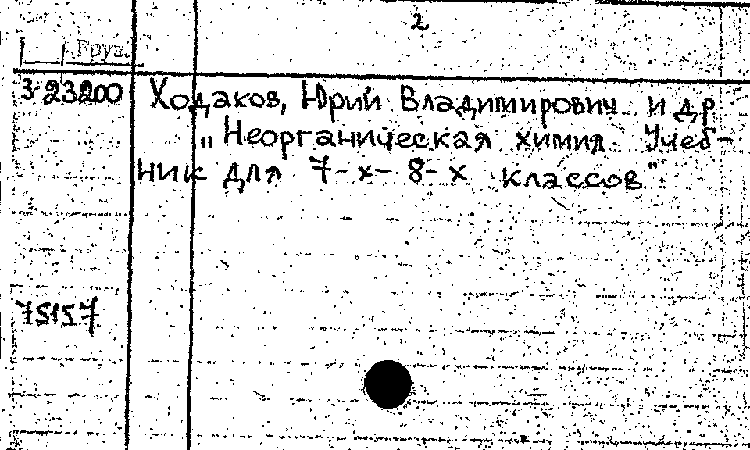 2
Груз.
3-23200 Ходаков, Юрий Владимирович и др
„Неорганическая химия. Учеб-
ник для 7-х-8-х классов".
75157